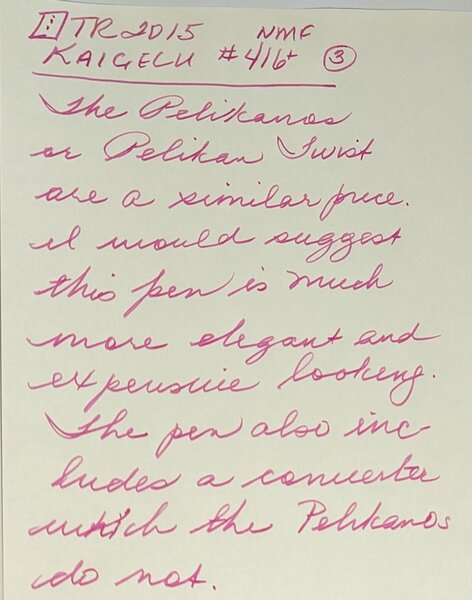 TR2015 NMF
KAIGELU #416+ 3
The Pelikanos
or Pelikan Twist
are a similar price.
I would suggest
this pen is much
more elegant and
expensive looking.
The pen also inc-
ludes a converter
which the Pelikanos
do not.